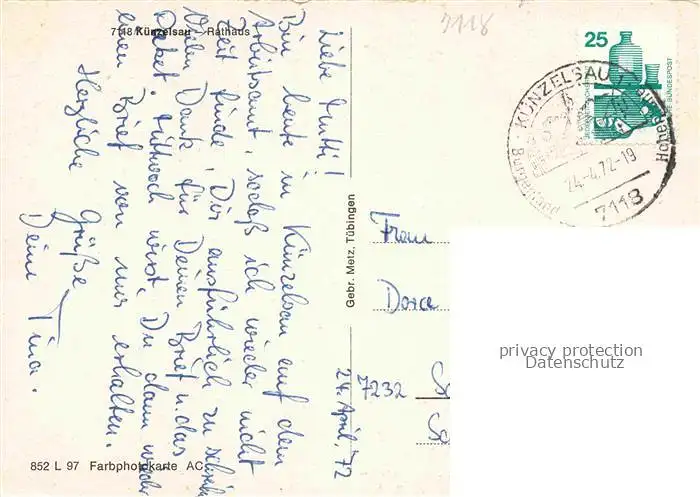 7118
7118 Künzelsau – Rathaus
Liebe Mutti!
Bin heute in Künzelsau auf dem
Arbeitsamt, sodaß ich wieder nicht
Zeit finde, Dir ausführlich zu schreiben
Vielen Dank für Deinen Brief u. das
Paket. Mittwoch wirst Du dann wieder
einen Brief von mir erhalten.
Herzliche Grüße
Deine Tina.
24. April, 72
Gebr. Metz, Tübingen
852 L 97 Farbphotokarte AC
25
DEUTSCHE BUNDESPOST
KÜNZELSAU
24.-4.72-19
7118
Frau
Dora
7232
privacy protection
Datenschutz